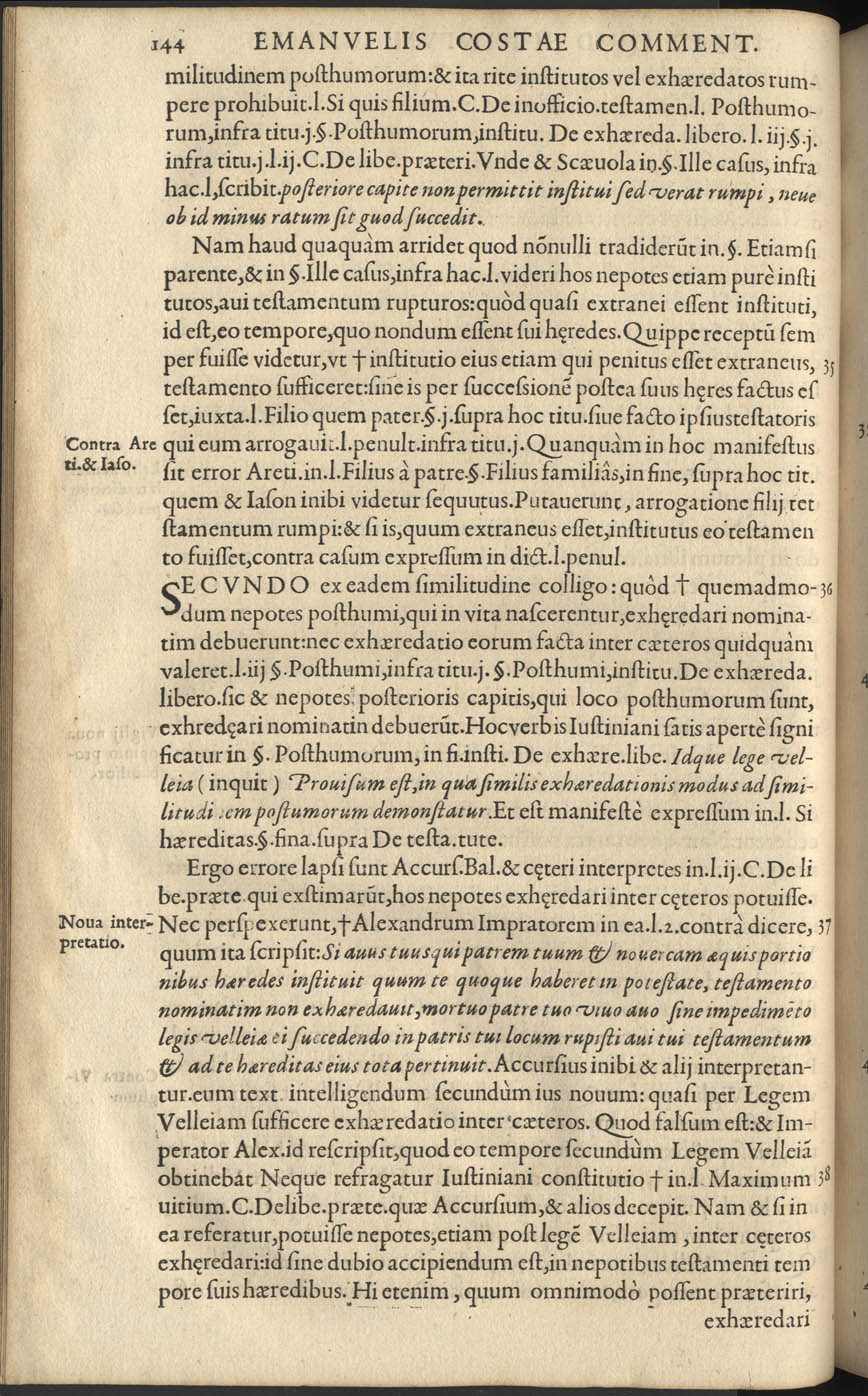 144 EMANVELIS COSTAE COMMENT.
militudinem posthumorum:& ita rite institutos vel exhæredatos rum-
pere prohibuit.l.Si quis filium.C.De inofficio.testamen.l. Posthumo-
rum,infra titu.j.§.Posthumorum,institu. De exhæreda. libero. l. iij.§.j.
infra titu.j.l.ij.C.De libe.præteri.Vnde & Scæuola in.§.Ille casus, infra
hac.l,scribit.posteriore capite non permittit institui sed verat rumpi, neue
ob id minus ratum sit guod succedit.
Nam haud quaquàm arridet quod nõnulli tradiderũt in.§. Etiamsi
parente,& in §.Ille casus,infra hac.l.videri hos nepotes etiam purè insti
tutos,aui testamentum rupturos:quòd quasi extranei essent instituti,
id est,eo tempore,quo nondum essent sui hęredes.Quippe receptũ sem
per fuisse videtur,vt † institutio eius etiam qui penitus esset extraneus, 35
testamento sufficeret:siue is per successionẽ postea suus hęres factus es
set,iuxta.l.Filio quem pater.§.j.supra hoc titu.siue facto ipsiustestatoris
Contra Are
ti.& Iaso.
qui eum arrogauit.l.penult.infra titu.j.Quanquàm in hoc manifestus
sit error Areti.in.l.Filius à patre.§.Filius familiâs,in fine, supra hoc tit.
quem & Iason inibi videtur sequutus.Putauerunt, arrogatione filij tet
stamentum rumpi:& si is,quum extraneus esset,institutus eo testamen
to fuisset,contra casum expressum in dict.l.penul.
SECVNDO ex eadem similitudine colligo: quòd † quemadmo- 36
dum nepotes posthumi,qui in vita nascerentur,exhęredari nomina-
tim debuerunt:nec exhæredatio eorum facta inter cæteros quidquàm
valeret.l.iij §.Posthumi,infra titu.j. §.Posthumi,institu.De exhæreda.
libero.sic & nepotes posterioris capitis,qui loco posthumorum sunt,
exhredęari nominatin debuerũt.Hoc verbis Iustiniani satis apertè signi
ficatur in §. Posthumorum, in fi.insti. De exhære.libe. Idque lege vel-
leia (inquit) Prouisum est,in qua similis exhæredationis modus ad simi-
litudi em postumorum demonstatur.Et est manifestè expressum in.l. Si
hæreditas.§.fina.supra De testa.tute.
Ergo errore lapsi sunt Accurs.Bal.& cęteri interpretes in.l.ij.C.De li
be.præte.qui exstimarũt,hos nepotes exhęredari inter cęteros potuisse.
Noua inter-
pretatio.
Nec perspexerunt,†Alexandrum Impratorem in ea.l.2.contrà dicere, 37
quum ita scripsit:Si auus tuus qui patrem tuum & nouercam æquis portio
nibus hæredes instituit quum te quoque haberet in potestate, testamento
nominatim non exhæredauit,mortuo patre tuo viuo auo sine impedimẽto
legis velleiæ ei succedendo in patris tui locum rupisti aui tui testamentum
& ad te hæreditas eius tota pertinuit.Accursius inibi & alij interpretan-
tur.eum text. intelligendum secundùm ius nouum: quasi per Legem
Velleiam sufficere exhæredatio inter cæteros. Quod falsum est:& Im-
perator Alex.id rescripsit,quod eo tempore secundùm Legem Velleiã
obtinebat Neque refragatur Iustiniani constitutio † in.l. Maximum 38
uitium.C.Delibe.præte.quæ Accursium,& alios decepit. Nam & si in
ea referatur,potuisse nepotes,etiam post legẽ Velleiam, inter cęteros
exhęredari:id sine dubio accipiendum est,in nepotibus testamenti tem
pore suis hæredibus. Hi etenim, quum omnimodò possent præteriri,
exhæredari